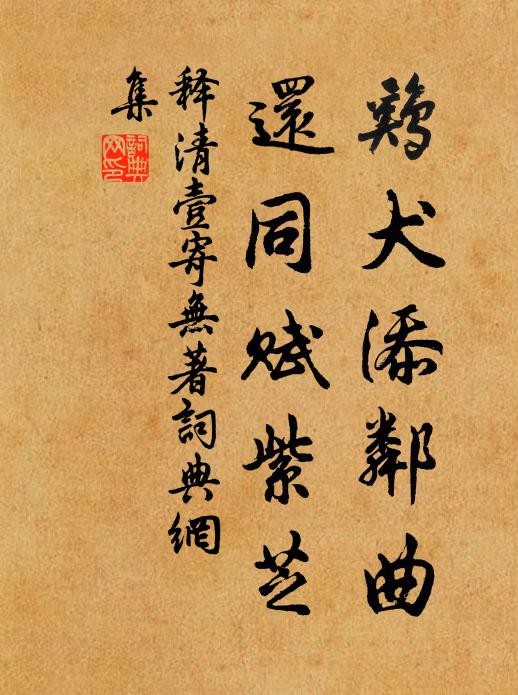 鷄犬添鄰曲
還同賦紫芝
释清壹寄無著詞典網
集
詞典網印